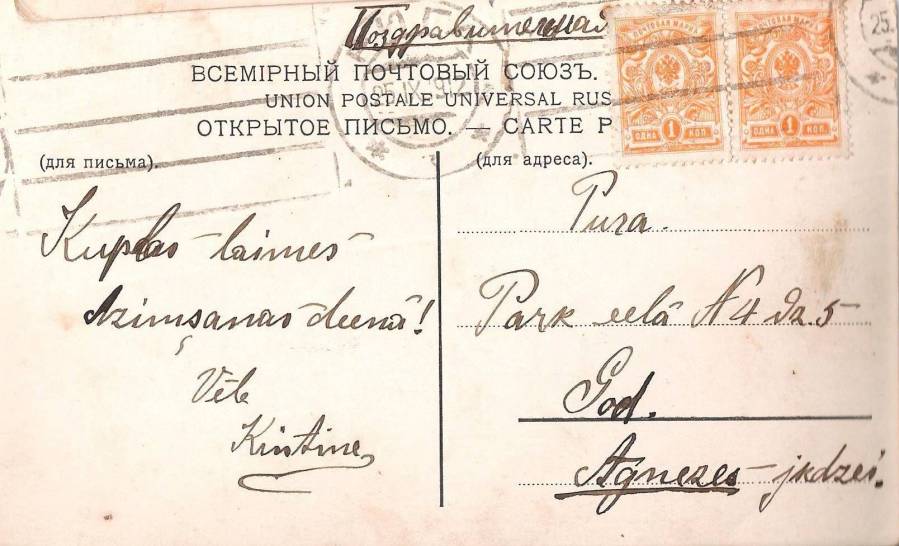 Поздравительная
ВСЕМІРНЫЙ ПОЧТОВЫЙ СОЮЗЪ.
UNION POSTALE UNIVERSAL RUS
ОТКРЫТОЕ ПИСЬМО. — CARTE P
ПОЧТОВАЯ МАРКА
ОДНА 1 КОП.
ПОЧТОВАЯ МАРКА
ОДНА 1 КОП.
25.IX.1912
25.
(для письма).
Kuplas laimes
dzimšanas deenā!
Vēle
Kristine
(для адреса).
Pura.
Park eelā N4 dz. 5
God.
Agneses jkdzei.